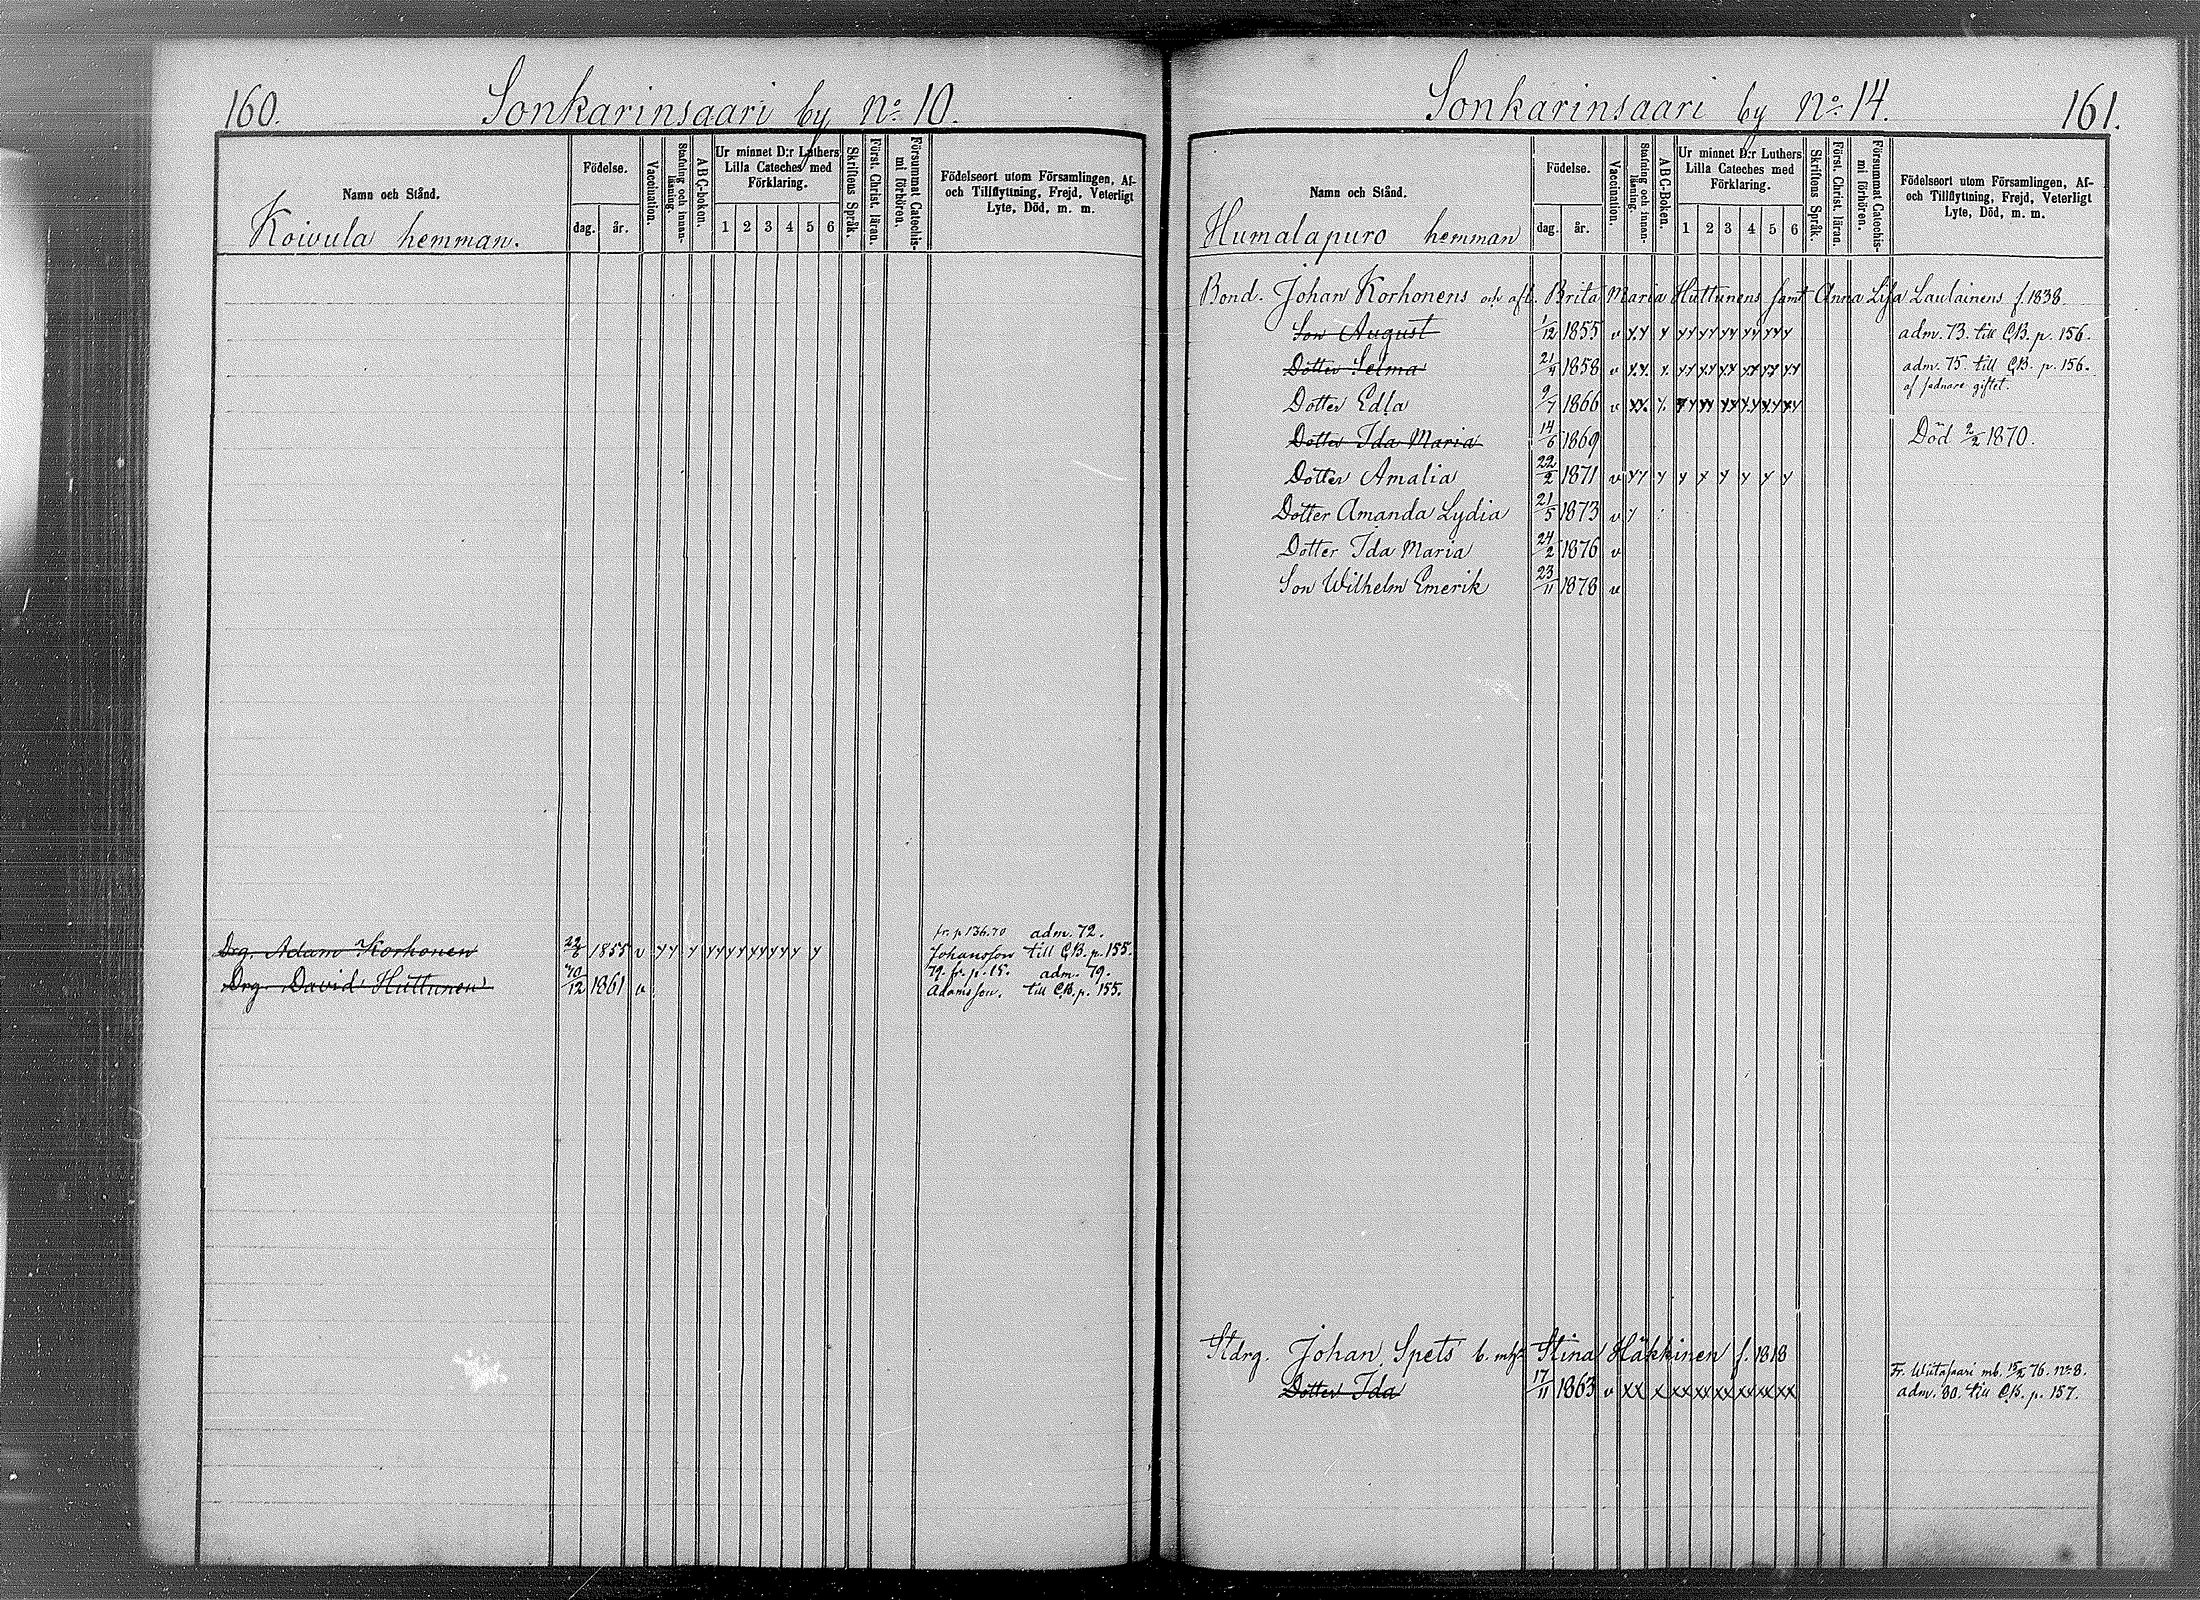 160. Sonkarinsaari by No 10.
Namn och Stånd.
Koivula hemman.
Födelse.
dag. år.
Vaccination.
Stafning och innanläsning.
A B C-boken.
Ur minnet D:r Luthers Lilla Cateches med Förklaring.
1 2 3 4 5 6
Skriftens Språk.
Först. Christ. läran.
Försummat Catechismi förhören.
Födelseort utom Församlingen, Af-
och Tillflyttning, Frejd, Veterligt
Lyte, Död, m. m.
fr. p 136. 70 adm. 72.
Drg. Adam Korhonen 22/6 1855 v Johansson till C.B. p. 155.
79. fr. p. 15. adm. 79.
Drg. David Huttunen 12 1861 v Adamsson. till C.B. p. 155.
Sonkarinsaari by No 14. 161.
Namn och Stånd.
Humalapuro hemman
Födelse.
dag. år.
Vaccination.
Stafning och innanläsning.
A B C-boken.
Ur minnet D:r Luthers Lilla Cateches med Förklaring.
1 2 3 4 5 6
Skriftens Språk.
Först. Christ. läran.
Försummat Catechismi förhören.
Födelseort utom Församlingen, Af-
och Tillflyttning, Frejd, Veterligt
Lyte, Död, m. m.
Bond. Johan Korhonens och afl. Brita Maria Huttunens samt Anna Lisa Laulainens f. 1838.
Son August 1/12 1855 v adm. 73. till C.B. p. 156.
Dotter Selma 21/4 1858 v adm. 75. till C.B. p. 156.
af sednare giftet.
Dotter Edla 9/7 1866 v
Dotter Ida Maria 14/6 1869 Död 2/2 1870.
Dotter Amalia 22/2 1871 v
Dotter Amanda Lydia 21/5 1873 v
Dotter Ida Maria 24/2 1876 v
Son Wilhelm Emerik 23/11 1878 v
Stdrg. Johan Spets b. m. Stina Häkkinen f. 1818
Fr. Wiitasaari mb. 15/2 76. no 8.
Dotter Ida 17/11 1863 v adm. 80. till C.B. p. 157.